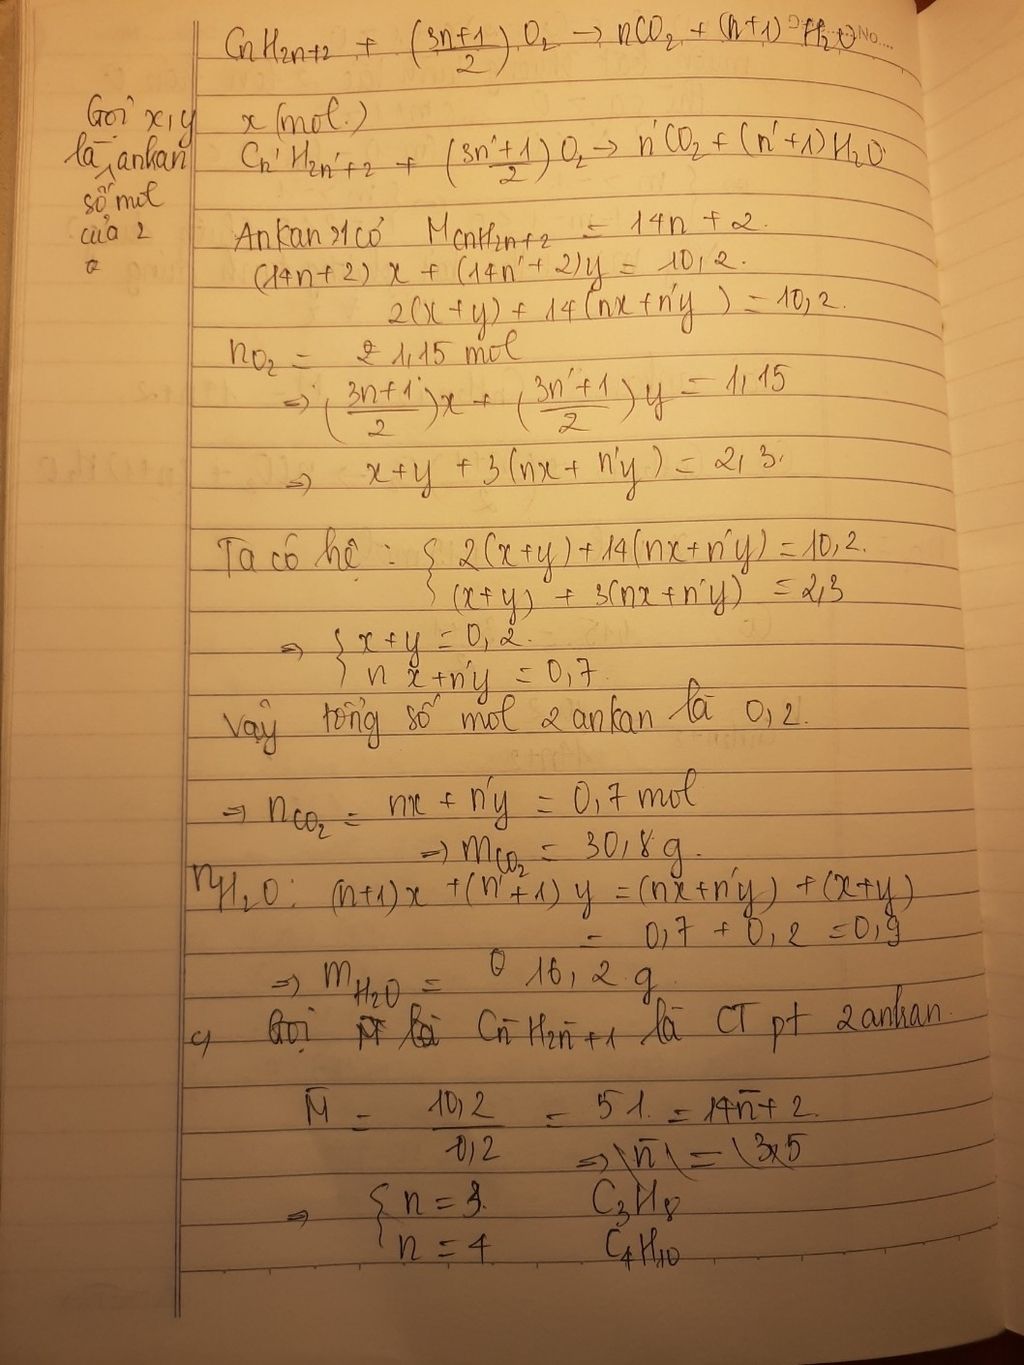 CnH2n+2 + (3n+1/2) O2 → nCO2 + (n+1) H2O
No....
Gọi x, y
là số mol
của 2 ankan
x (mol)
Cn'H2n'+2 + (3n'+1/2) O2 → n'CO2 + (n'+1) H2O
Ankan 1 có M CnH2n+2 = 14n + 2.
(14n+2) x + (14n'+2)y = 10,2.
2(x+y) + 14(nx+n'y) = 10,2.
nO2 = 1,15 mol
⇒ (3n+1/2)x + (3n'+1/2)y = 1,15
⇒ x+y + 3(nx + n'y) = 2,3.
Ta có hệ : { 2(x+y) + 14(nx+n'y) = 10,2.
(x+y) + 3(nx+n'y) = 2,3
⇒ { x+y = 0,2.
nx+n'y = 0,7.
Vậy tổng số mol 2 ankan là 0,2.
⇒ nCO2 = nx + n'y = 0,7 mol
⇒ mCO2 = 30,8 g.
nH2O : (n+1)x + (n'+1) y = (nx+n'y) + (x+y)
= 0,7 + 0,2 = 0,9
⇒ mH2O = 16,2 g
c, Gọi Cn̄H2n̄+1 là CT pt 2 ankan.
M̄ = 10,2/0,2 = 51. = 14n̄ + 2.
⇒ |n̄| = 3,5
⇒ { n = 3. C3H8
n = 4 C4H10